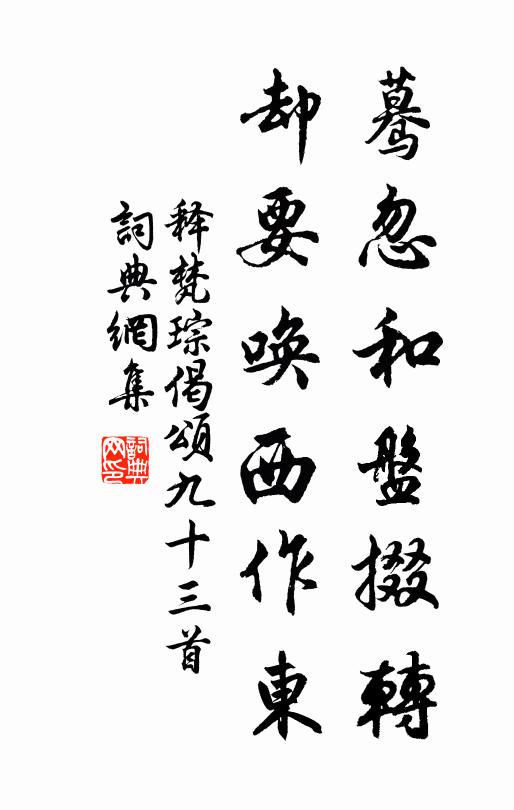 驀忽和盤掇轉
却要喚西作東
释梵琮偈頌九十三首
詞典網集
詞典网印